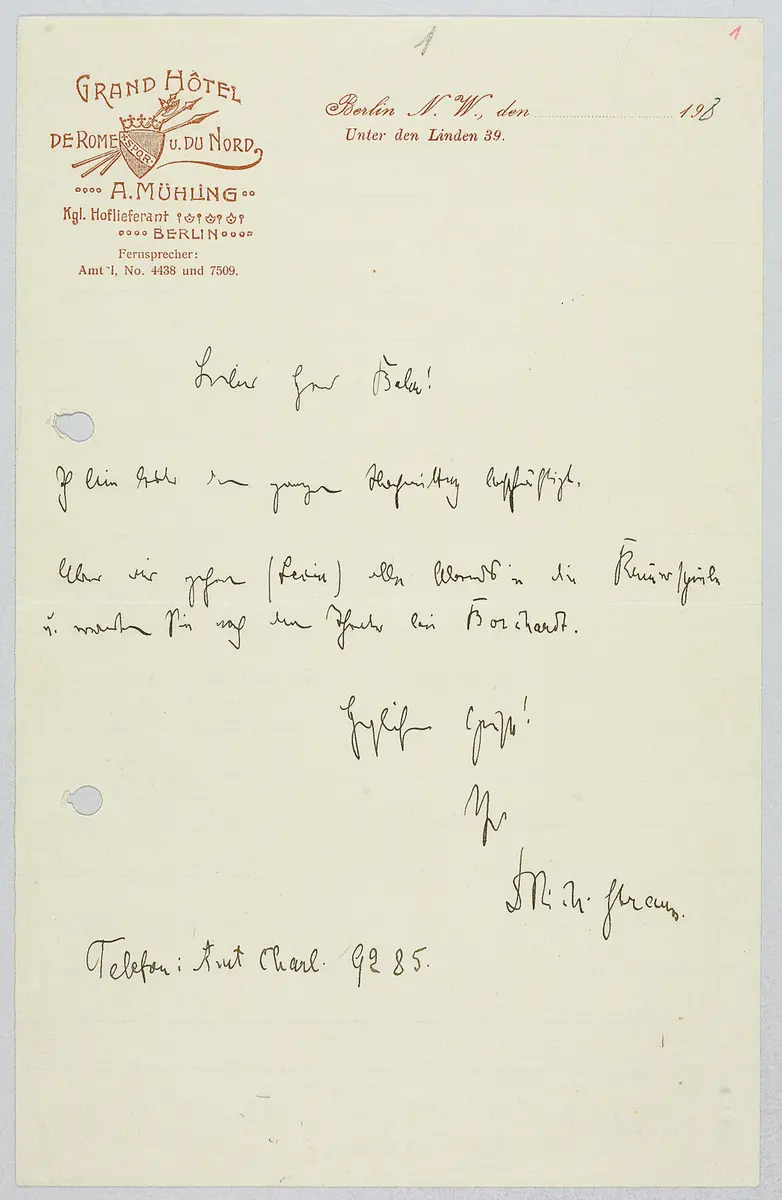 1
1
GRAND HÔTEL
DE ROME u. DU NORD
SPQR
A. MÜHLING
Kgl. Hoflieferant
BERLIN
Fernsprecher:
Amt I, No. 4438 und 7509.
Berlin N. W., den 198
Unter den Linden 39.
Lieber Herr
Ich bin heute den ganzen Nachmittag beschäftigt.
Aber wir gehen alle Abends in die Kammerspiele
u. erwarten Sie nach dem Theater bei Borchardt.
Herzlichen Gruß!
Ihr
Strauss.
Telefon: Amt Charl. 9285.